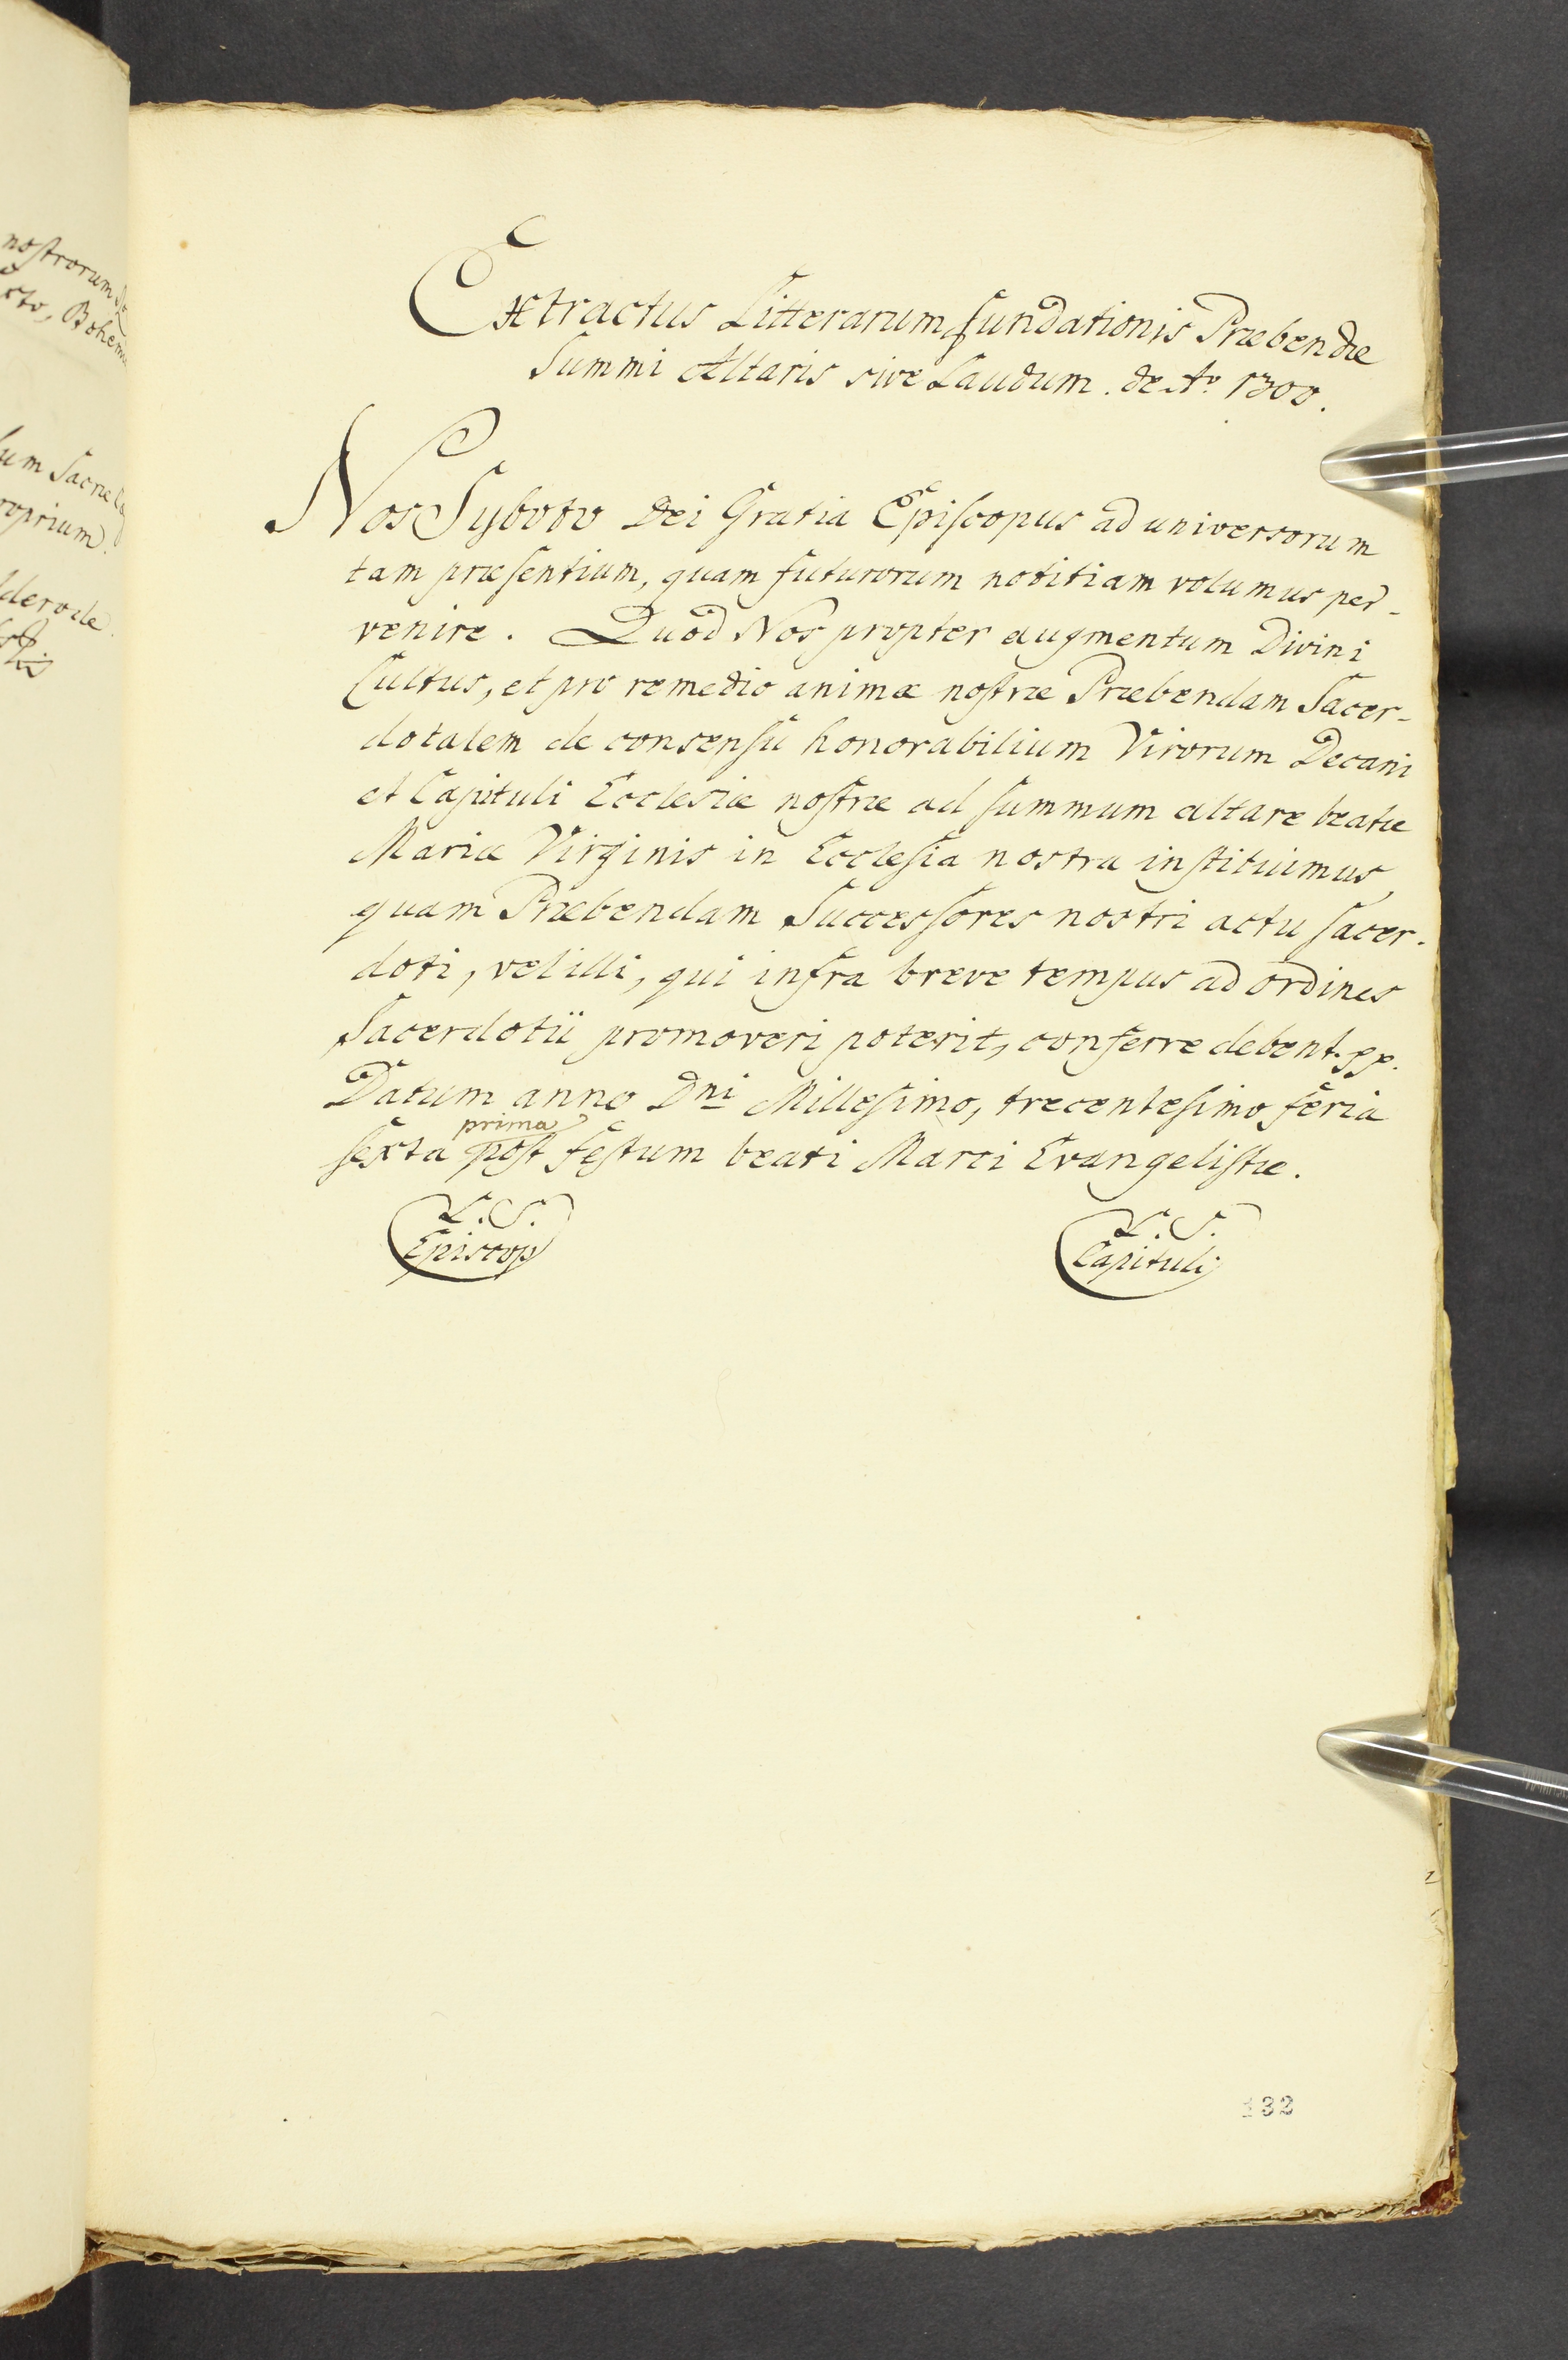 nostrorum
cto, Bohem
um Sacrae
roprium.
derode.
Extractus Litterarum fundationis Præbendæ
Summi Altaris sive Laudum. de Ao. 1300.
Nos Syboto Dei Gratia Episcopus ad universorum
tam præsentium, quam futurorum notitiam volumus per-
venire. Quod Nos propter augmentum Divini
Cultus, et pro remedio animæ nostræ Præbendam Sacer-
dotalem de consensu honorabilium Virorum Decani
et Capituli Ecclesiæ nostræ ad summum altare beatæ
Mariæ Virginis in Ecclesia nostra instituimus,
quam Præbendam Successores nostri actu sacer-
doti, vel illi, qui infra breve tempus ad ordines
Sacerdotii promoveri poterit, conferre debent. pp.
Datum anno Dni Millesimo, trecentesimo, feria
prima
sexta post festum beati Marci Evangelistæ.
L. S. L. S.
Episcop Capituli
132